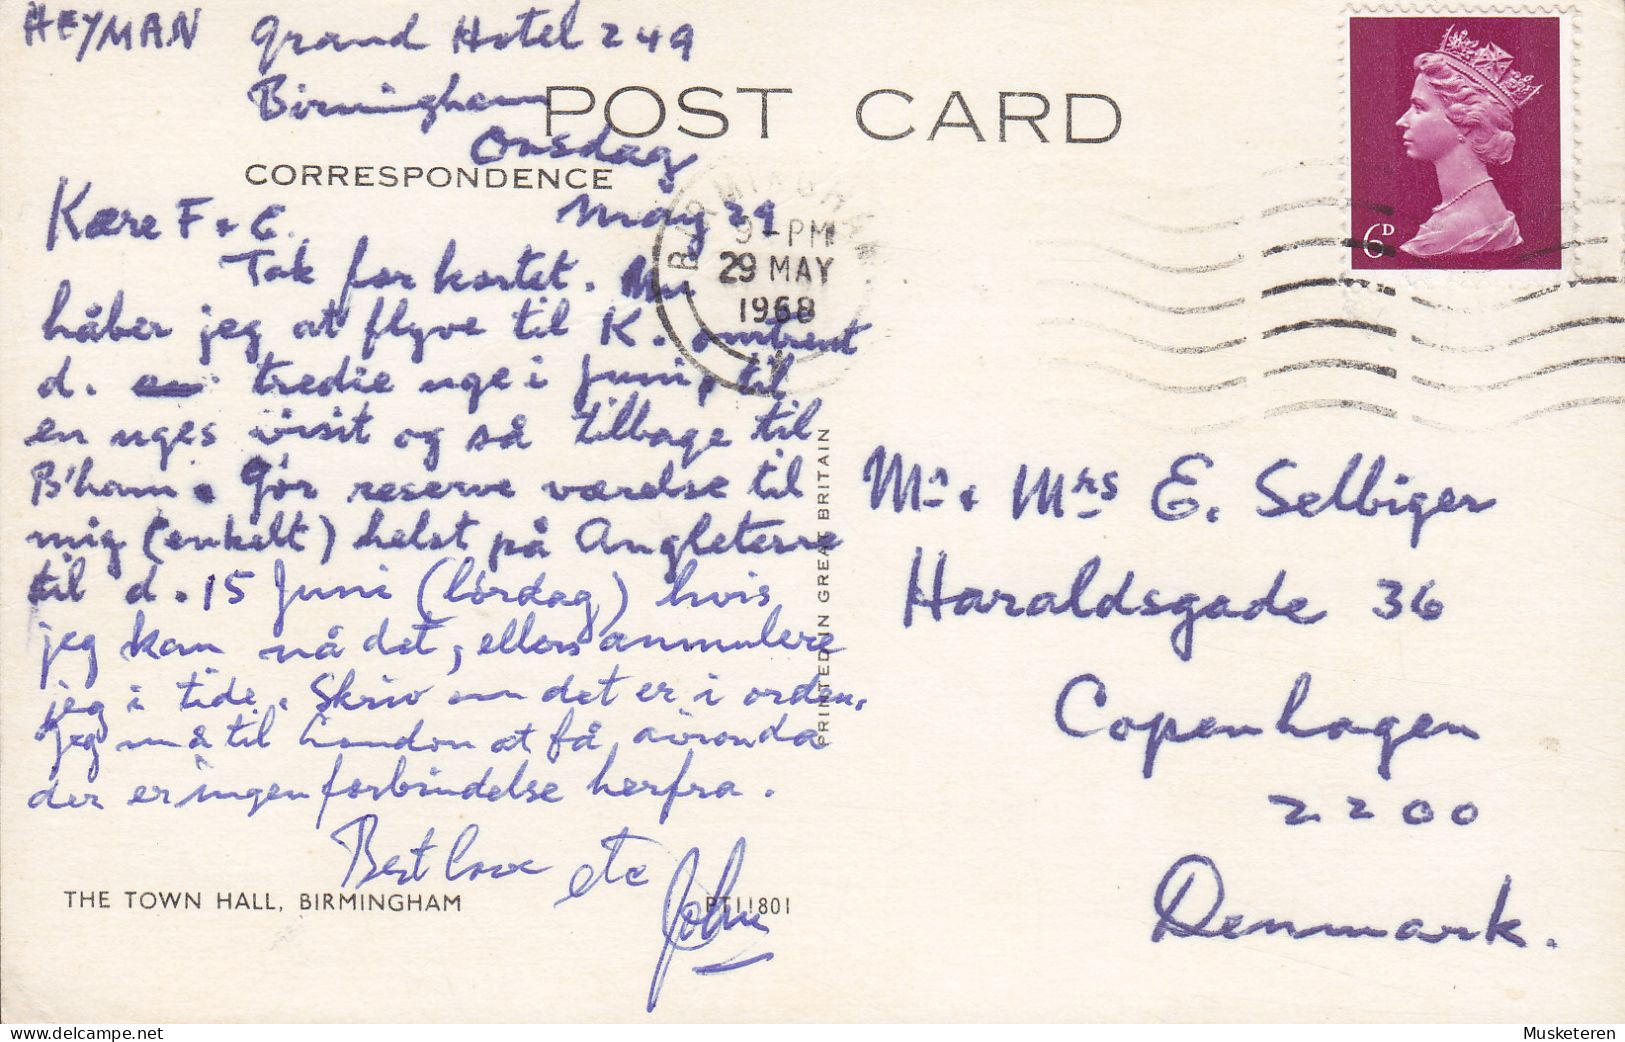 HEYMAN Grand Hotel 249
Birmingham
POST CARD
Onsdag
CORRESPONDENCE
May 29
Kære F + E.
Tak for kortet. Nu
håber jeg at flyve til K. omtrent
d. tredie uge i Juni, til
en uges visit og så tilbage til
B'ham. Gør reserve værelse til
mig (enkelt) helst på Angleterre
til d. 15 Juni (lørdag) hvis
jeg kan nå det, ellers annulere
jeg i tide. Skriv om det er i orden.
Jeg må til London at få
der er ingen forbindelse herfra.
Best love etc
John
THE TOWN HALL, BIRMINGHAM
PT11801
PRINTED IN GREAT BRITAIN
BIRMINGHAM
9 - PM
29 MAY
1968
6D
Mr & Mrs E. Selbiger
Haraldsgade 36
Copenhagen
2200
Denmark.
Musketeren